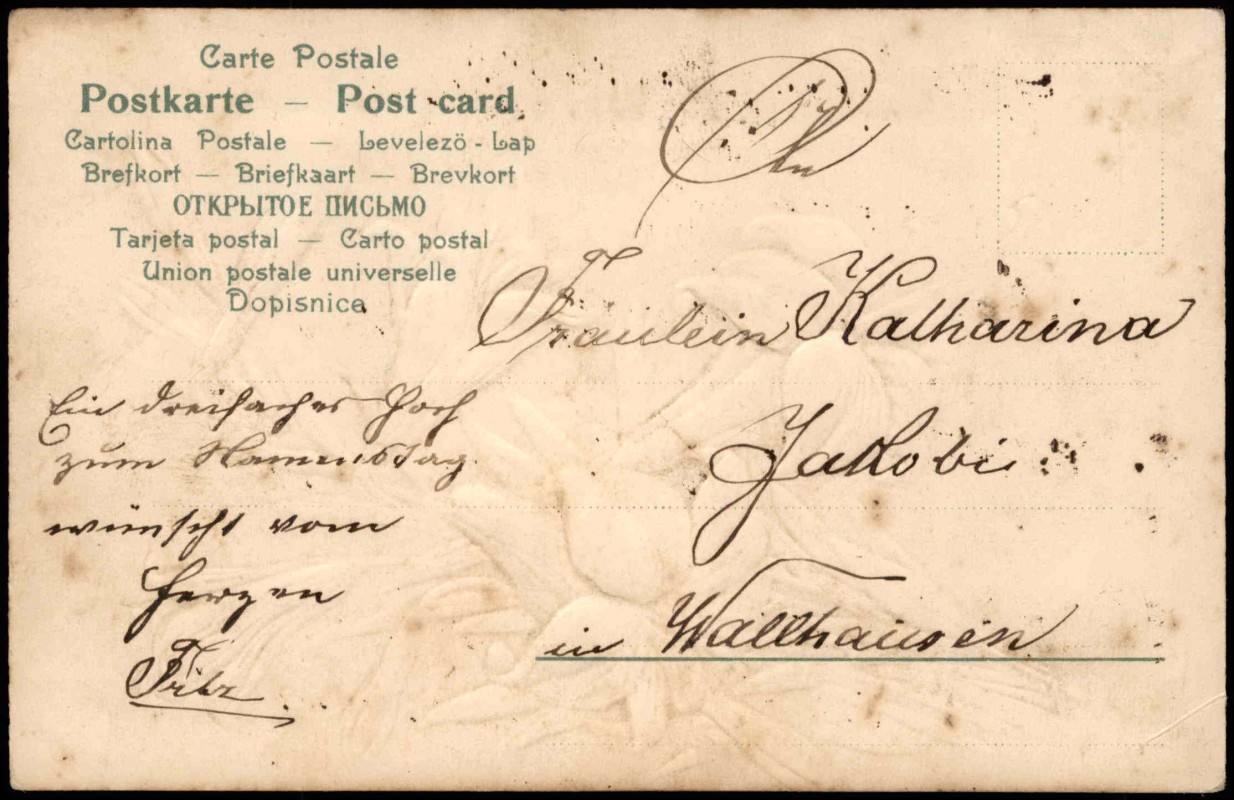 Carte Postale
Postkarte — Post card
Cartolina Postale — Levelező-Lap
Brefkort — Briefkaart — Brevkort
ОТКРЫТОЕ ПИСЬМО
Tarjeta postal — Carto postal
Union postale universelle
Dopisnice
An
Fräulein Katharina
Jakobi
in Wallhausen
Ein dreifaches Hoch
zum Namenstag
wünscht vom
Herzen
Fritz